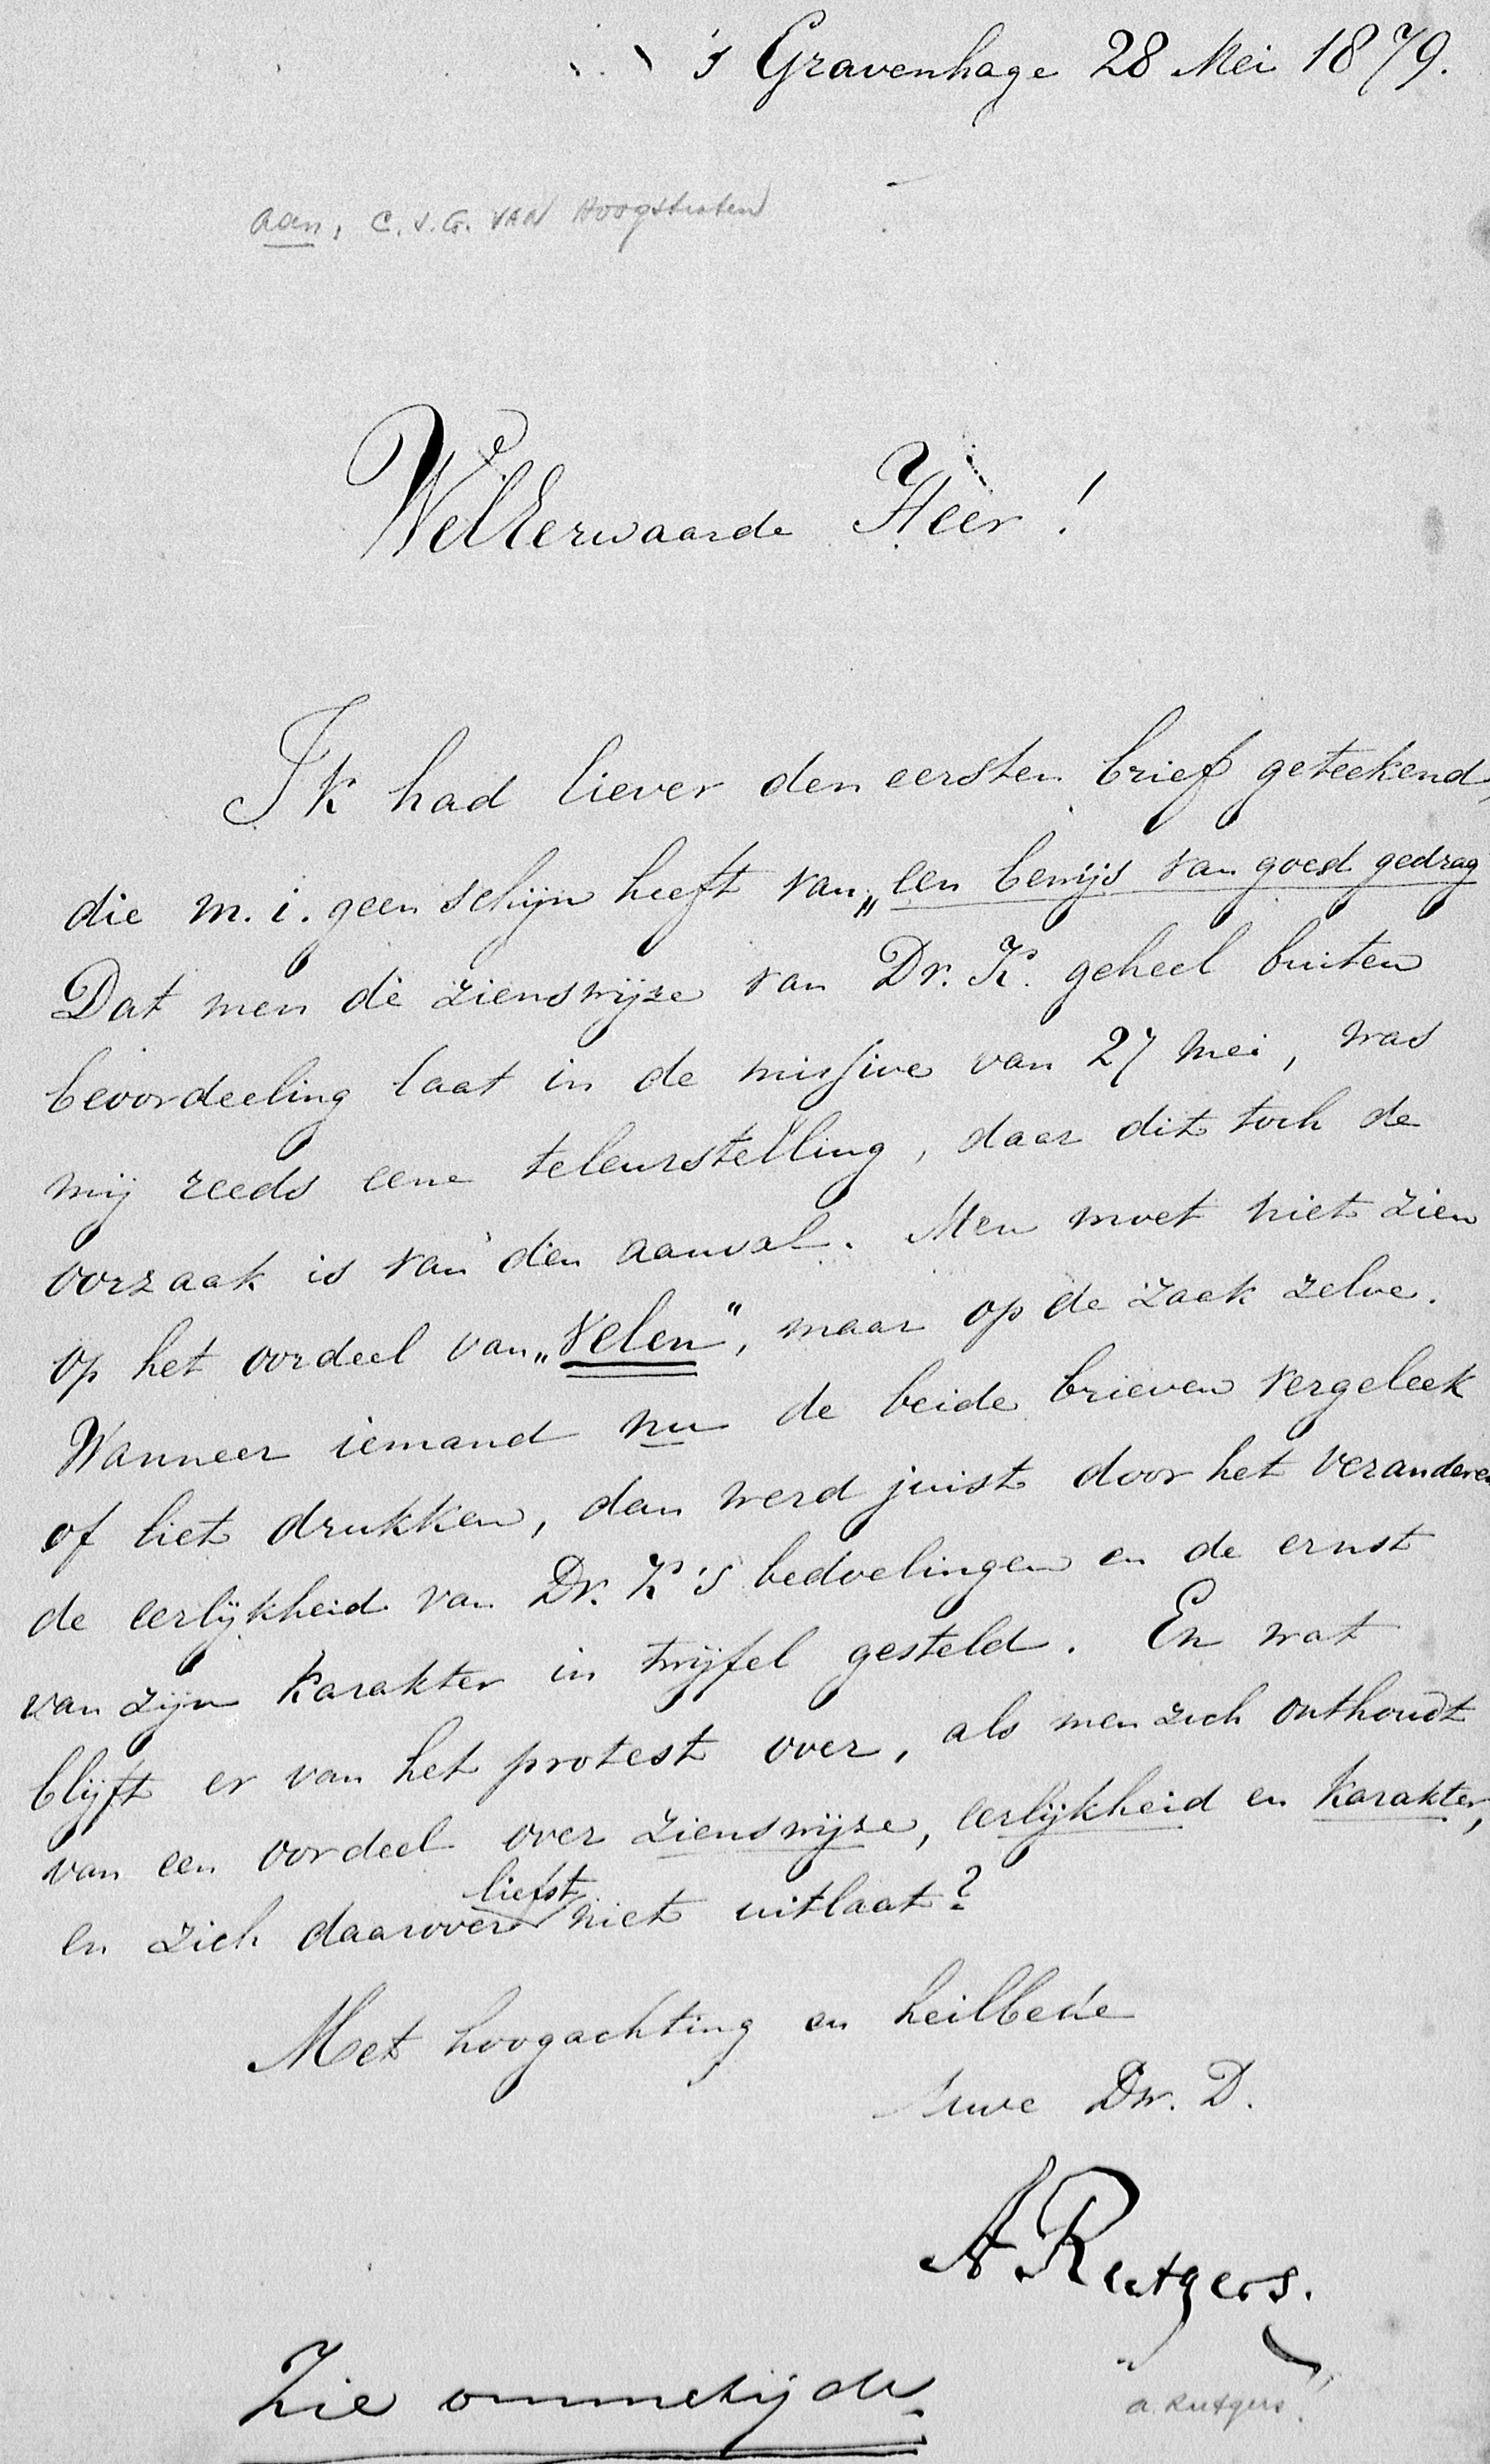 's Gravenhage 28 Mei 1879.
aan, C. S. G. VAN Hoogstraten
WelEerwaarde Heer!
Ik had liever den eersten brief geteekend,
die m. i. geen schijn heeft van „een bewijs van goed gedrag
Dat men de zienswijze van Dr. K. geheel buiten
beoordeeling laat in de missive van 27 Mei, was
mij reeds eene teleurstelling, daar dit toch de
oorzaak is van den aanval. Men moet niet zien
op het oordeel van „velen", maar op de zaak zelve.
Wanneer iemand nu de beide brieven vergeleek
of liet drukken, dan werd juist door het veranderen
de eerlijkheid van Dr. K's bedoelingen en de ernst
van zijn karakter in twijfel gesteld. En wat
blijft er van het protest over, als men zich onthoudt
van een oordeel over zienswijze, eerlijkheid en karakter,
liefst
en zich daarover niet uitlaat?
Met hoogachting en heilbede
Uwe Dw. D.
A Rutgers.
Zie ommezijde.
a. Rutgers.